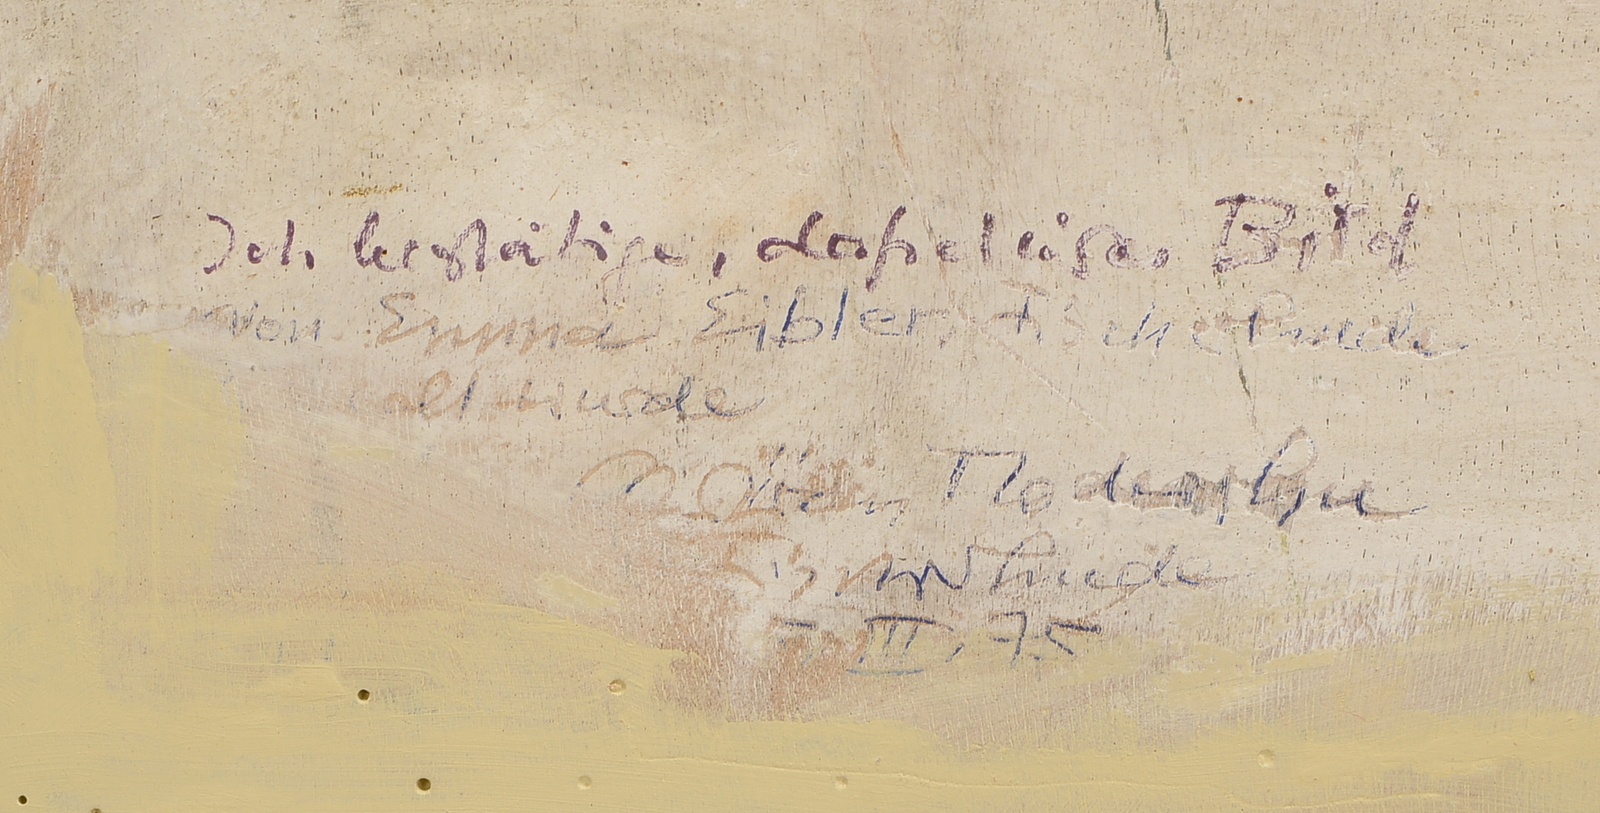 Ich bestätige, daß dieses Bild
von Emma Eibler, Fischerhude
alt wurde
Modersohn
Fischerhude
7. III. 75